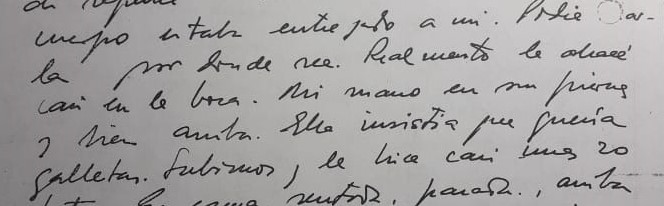 de repente
cuerpo estaba entregado a mi. Podia
la por donde sea. Realmente le
casi en la boca. Mi mano en sus piernas
y bien arriba. Ella insistia que queria
galletas. Subimos y le hice casi unas 20
la cama sentada, parada, arriba